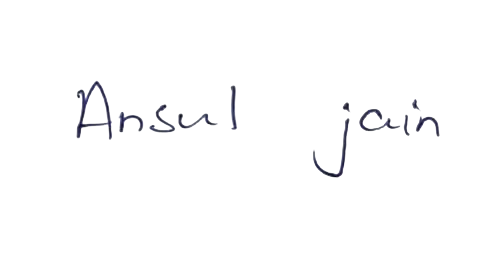 Ansul jain